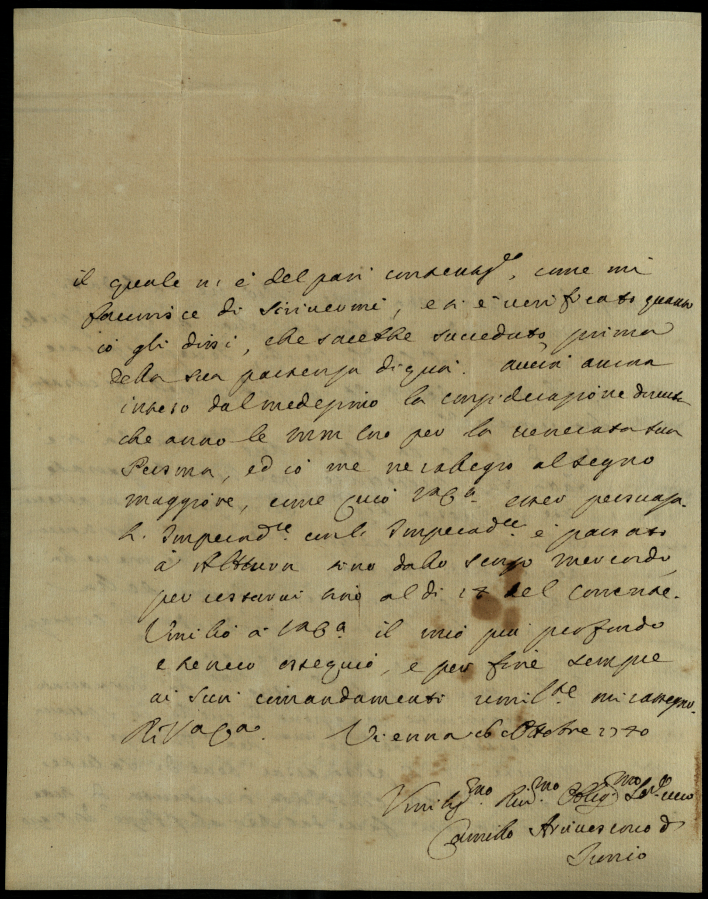 il quale n'è del pari contentiss.e, come mi
favorisce di scrivermi, e si è verificato quanto
io gli dissi, che sarebbe succeduto prima
della sua partenza di quà. Avrà ancora
inteso dal medesimo la considerazione
che anno le MM loro per la venerata sua
Persona, ed io me ne rallegro al segno
maggiore, come può esser persuasa.
L'Imperad.re con l'Imperad.ce è passato
à sino dallo scorso mercordì,
per restarvi sino al dì del corrente.
Umilio à il mio più profondo
e sincero ossequio, e per fine sempre
ai suoi comandamenti umilm.te mi rassegno.
Vienna Ottobre
Umiliss.mo Obblig.mo Ser.e vero
Camillo Arcivescovo di